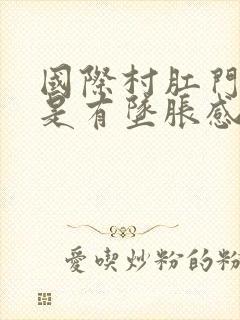 國際村肛門
是有墜脹感
愛喫炒粉的粉